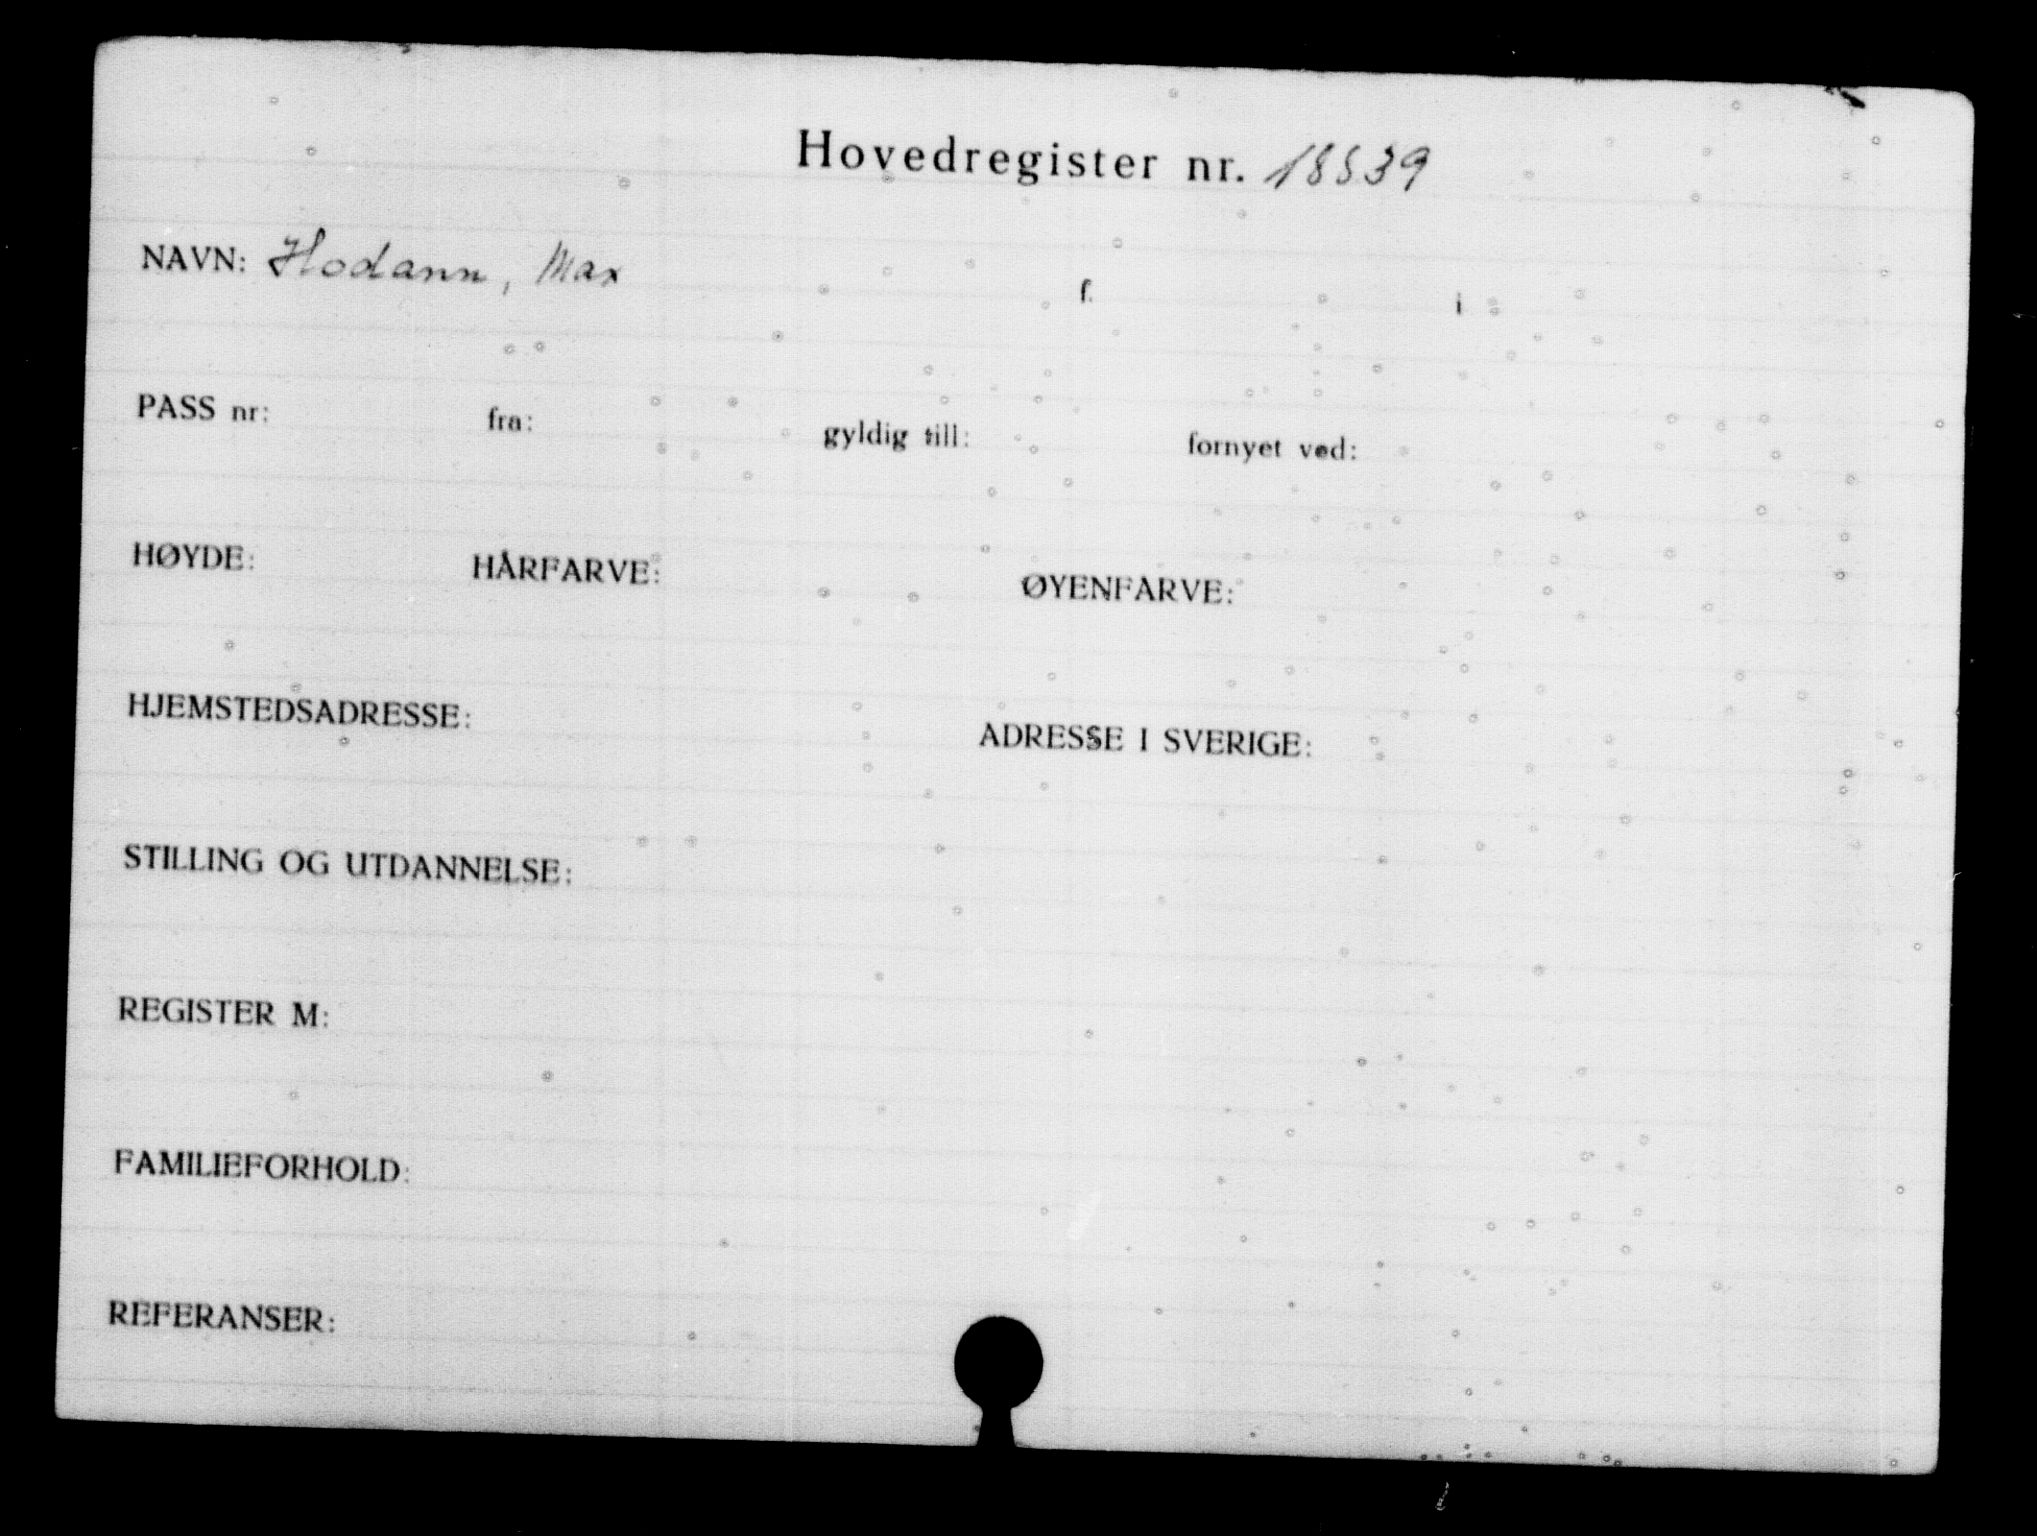 Hovedregister nr. 18539
NAVN: Hodann, Max f. i
PASS nr: fra: gyldig till: fornyet ved:
HØYDE: HÅRFARVE: ØYENFARVE:
HJEMSTEDSADRESSE: ADRESSE I SVERIGE:
STILLING OG UTDANNELSE:
REGISTER M:
FAMILIEFORHOLD:
REFERANSER: